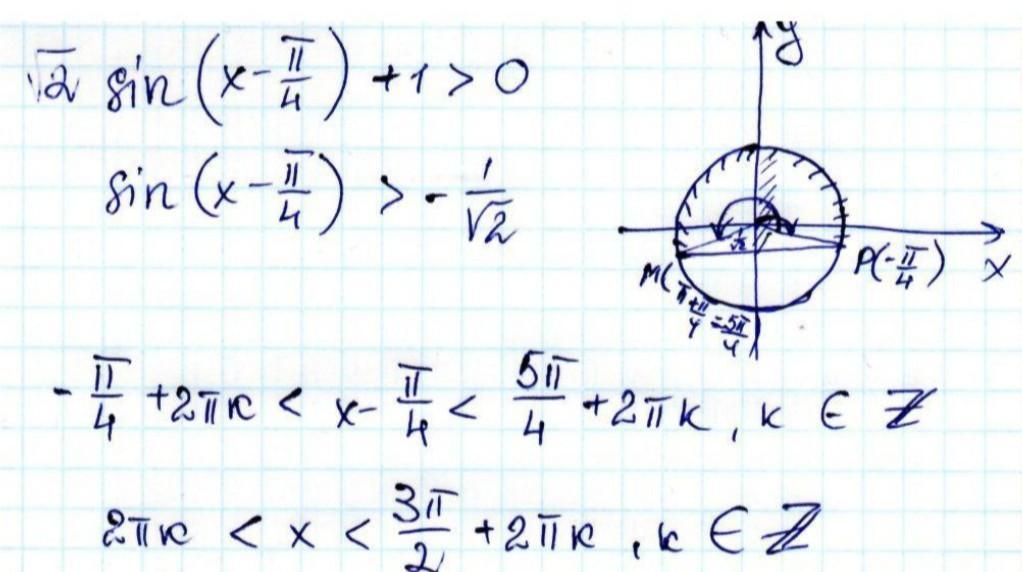 √2 sin(x - π/4) + 1 > 0
sin(x - π/4) > - 1/√2
y
x
P(-π/4)
M(π+π/4 = 5π/4
-π/4 + 2πκ < x - π/4 < 5π/4 + 2πκ, κ ∈ ℤ
2πκ < x < 3π/2 + 2πκ, κ ∈ ℤ